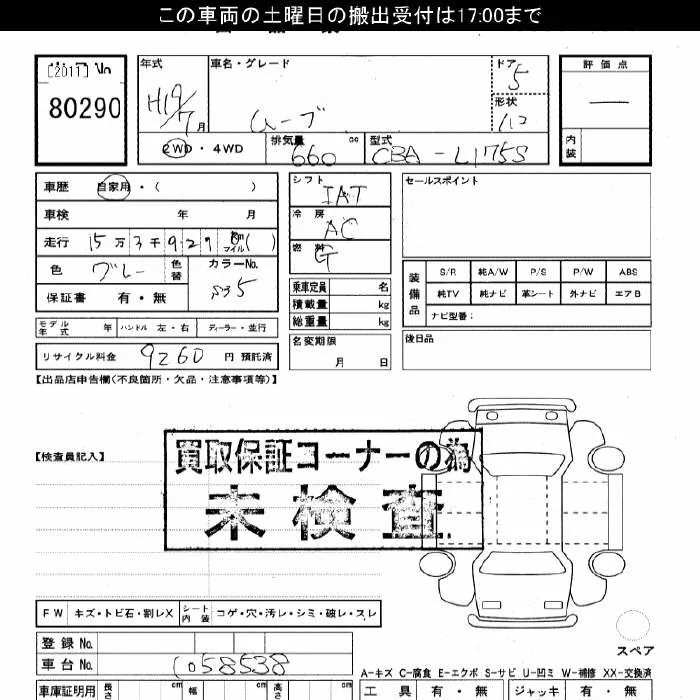 この車両の土曜日の搬出受付は17:00まで
[2011] No
80290
年式 H19/7月
車名・グレード ムーブ
ドア 5
形状
評価点 —
内装
2WD・4WD
排気量 660 cc
型式 CBA-L175S
車歴 自家用・( )
車検 年 月
走行 15万3千929 km マイル ( )
色 グレー 色替
カラーNo. S35
保証書 有・無
モデル年式 年 ハンドル 左・右 ディーラー・並行
リサイクル料金 9260 円 預託済
シフト IAT
冷房 AC
燃料 G
乗車定員 名
積載量 kg
総重量 kg
名変期限 月 日
セールスポイント
装備品
S/R 純A/W P/S P/W ABS
純TV 純ナビ 革シート 外ナビ エアB
ナビ型番：
後日品
【出品店申告欄(不良箇所・欠品・注意事項等)】
【検査員記入】
買取保証コーナーの為
未検査
FW キズ・トビ石・割レX シート内装 コゲ・穴・汚レ・シミ・破レ・スレ
登録No.
車台No. 0058538
スペア
A-キズ C-腐食 E-エクボ S-サビ U-凹ミ W-補修 XX-交換済
車庫証明用 長さ cm 幅 cm 高さ cm
工具 有・無 ジャッキ 有・無